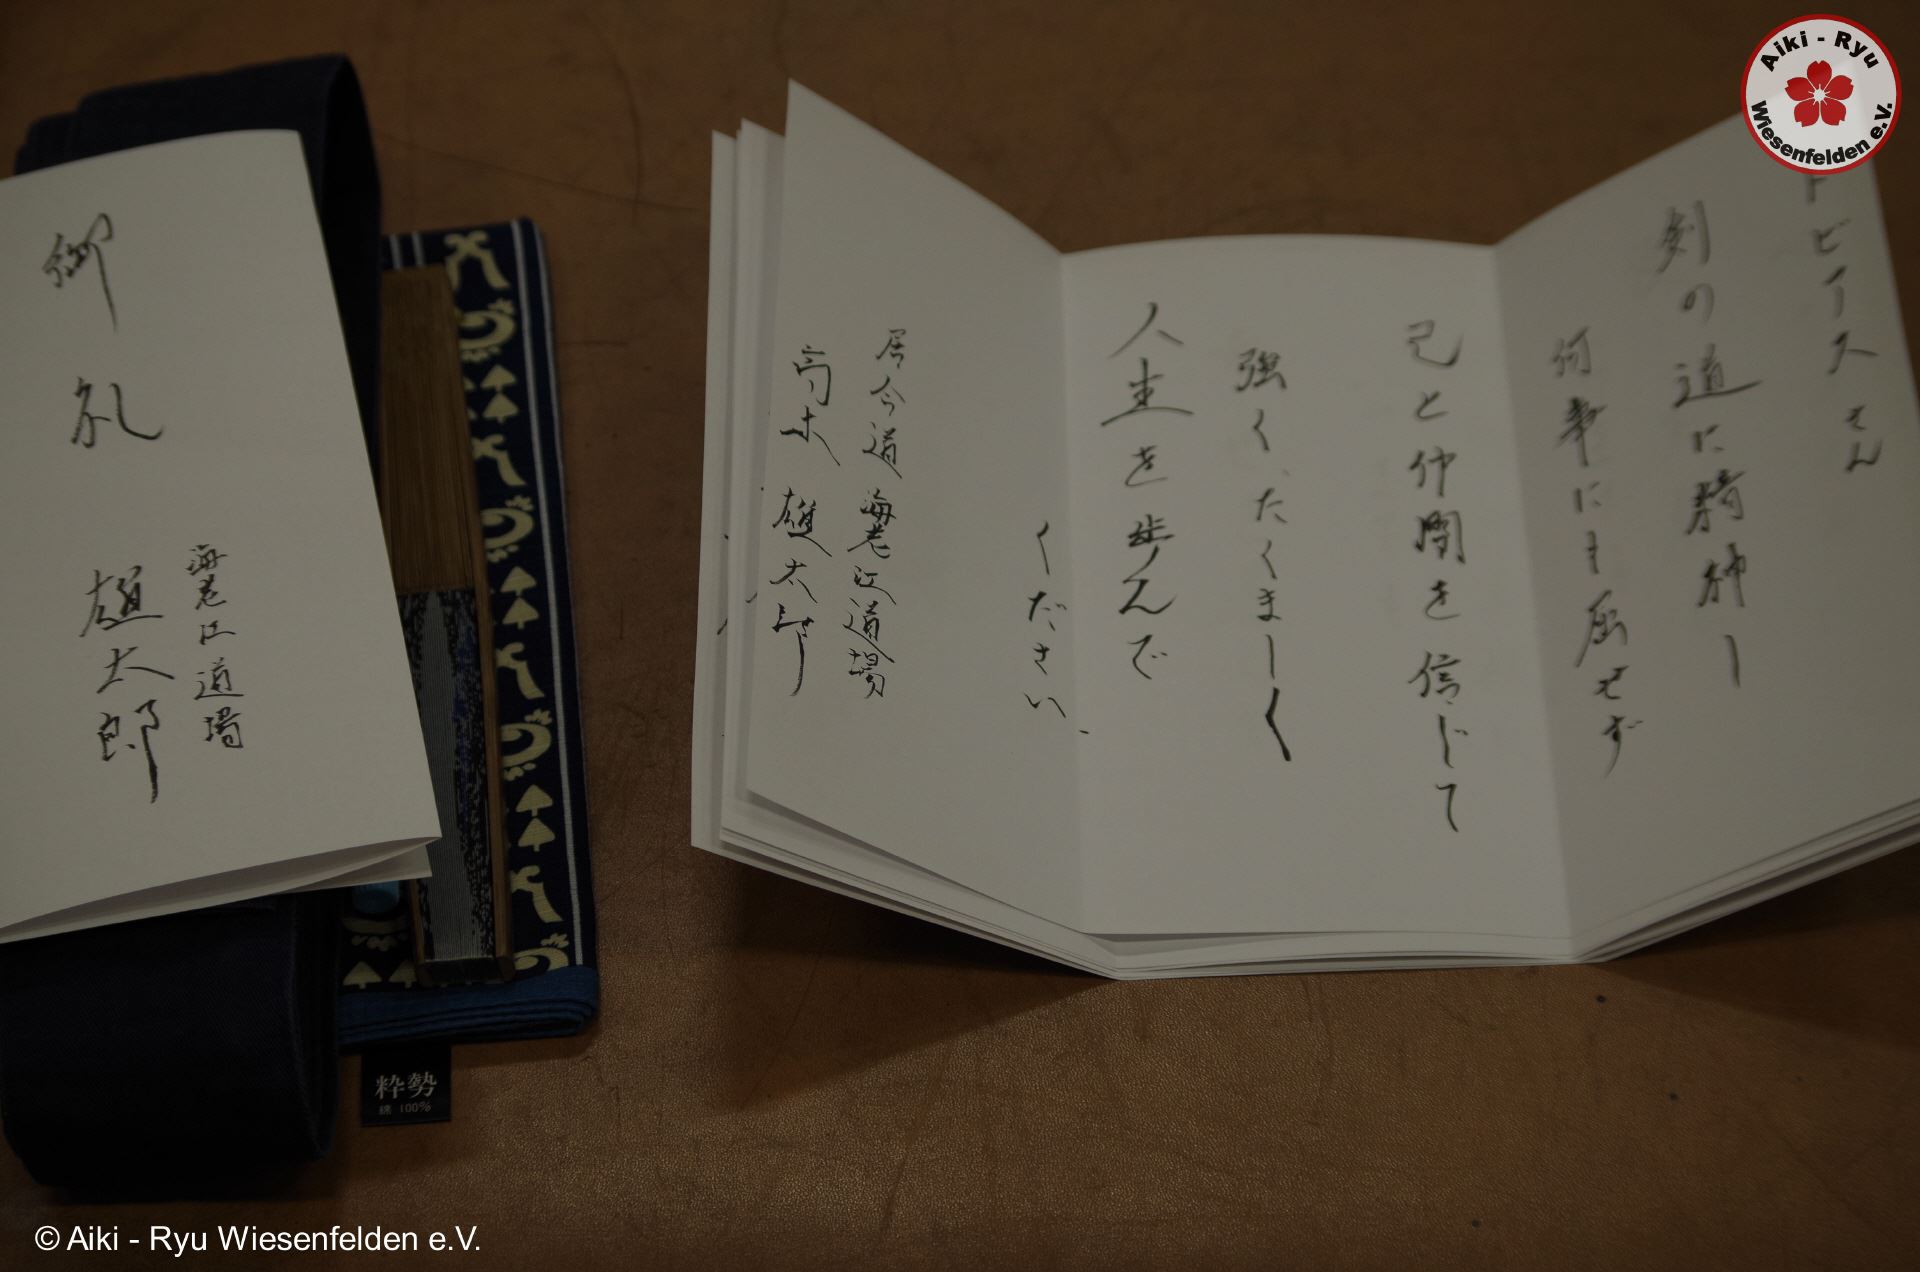 トビアスさん
剣の道に
何事にも屈せず
己と仲間を信じて
強く、たくましく
人生を歩んで
ください。
居合道 海老江道場
高木 雄太郎
御礼
海老江道場
雄太郎
粋勢
綿 100%
Aiki - Ryu
Wiesenfelden e.V.
© Aiki - Ryu Wiesenfelden e.V.